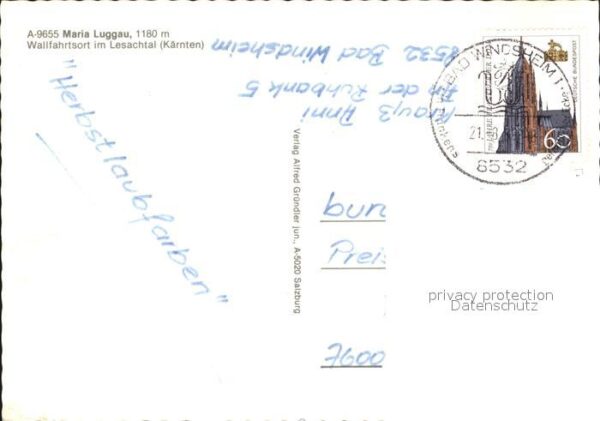 A-9655 Maria Luggau, 1180 m
Wallfahrtsort im Lesachtal (Kärnten)
Krauß Anni
An der Ruhbank 5
8532 Bad Windsheim
"Herbstlaubfarben"
Verlag Alfred Gründler jun., A-5020 Salzburg
DEUTSCHE BUNDESPOST
65
BAD WINDSHEIM 1
21.
8532
bun
Preis
7600
privacy protection
Datenschutz